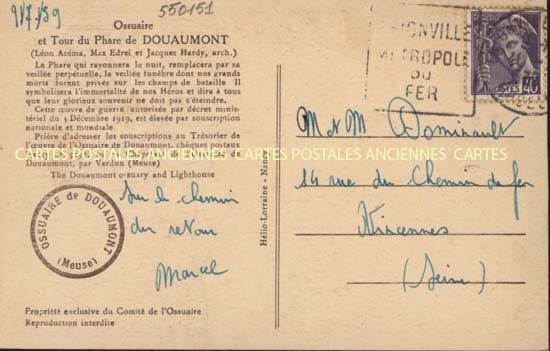 9/7/39
550151
Ossuaire
et Tour du Phare de DOUAUMONT
(Léon Azéma, Max Edrei et Jacques Hardy, arch.)
La Phare qui rayonnera la nuit, remplacera par sa
veillée perpétuelle, la veillée funèbre dont nos grands
morts furent privés sur les champs de bataille. Il
symbolisera l'immortalité de nos Héros et dira à tous
que leur glorieux souvenir ne doit pas s'éteindre.
Cette œuvre de guerre autorisée par décret minis-
tériel du 3 Décembre 1919, est élevée par souscription
nationale et mondiale.
Prière d'adresser les souscriptions au Trésorier de
l'œuvre de l'Ossuaire de Douaumont, chèques postaux
CARTES POSTALES ANCIENNES CARTES POSTALES ANCIENNES CARTES
Douaumont, par Verdun (Meuse)
The Douaumont ossuary and Lighthouse
OSSUAIRE de DOUAUMONT
(Meuse)
Sur le chemin
du retour
Marcel
Propriété exclusive du Comité de l'Ossuaire
Reproduction interdite
Hélio-Lorraine - Nancy
IONVILLE
METROPOLE
DU
FER
POSTES
40
M et M Dominault
14 rue du Chemin de fer
Vincennes
(Seine)